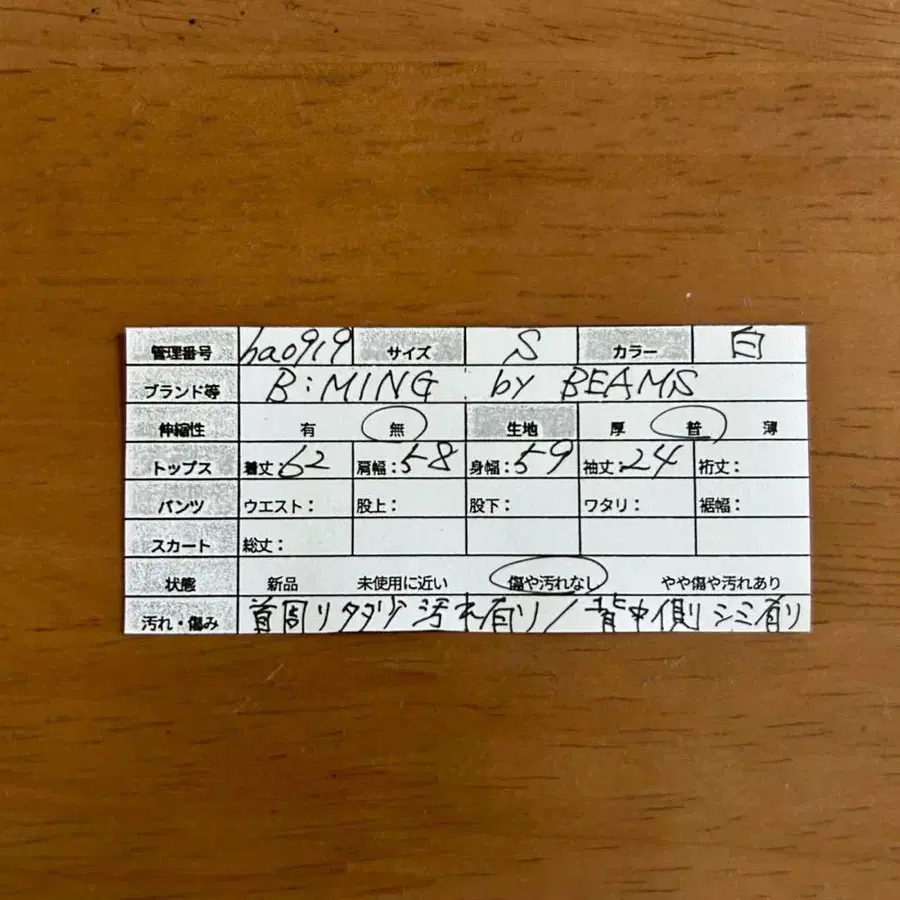 管理番号 hao919 サイズ S カラー 白
ブランド等 B:MING by BEAMS
伸縮性 有 無 生地 厚 普 薄
トップス 着丈:62 肩幅:58 身幅:59 袖丈:24 裄丈:
パンツ ウエスト: 股上: 股下: ワタリ: 裾幅:
スカート 総丈:
状態 新品 未使用に近い 傷や汚れなし やや傷や汚れあり
汚れ・傷み 首周り 汚れ有り/背中側シミ有り